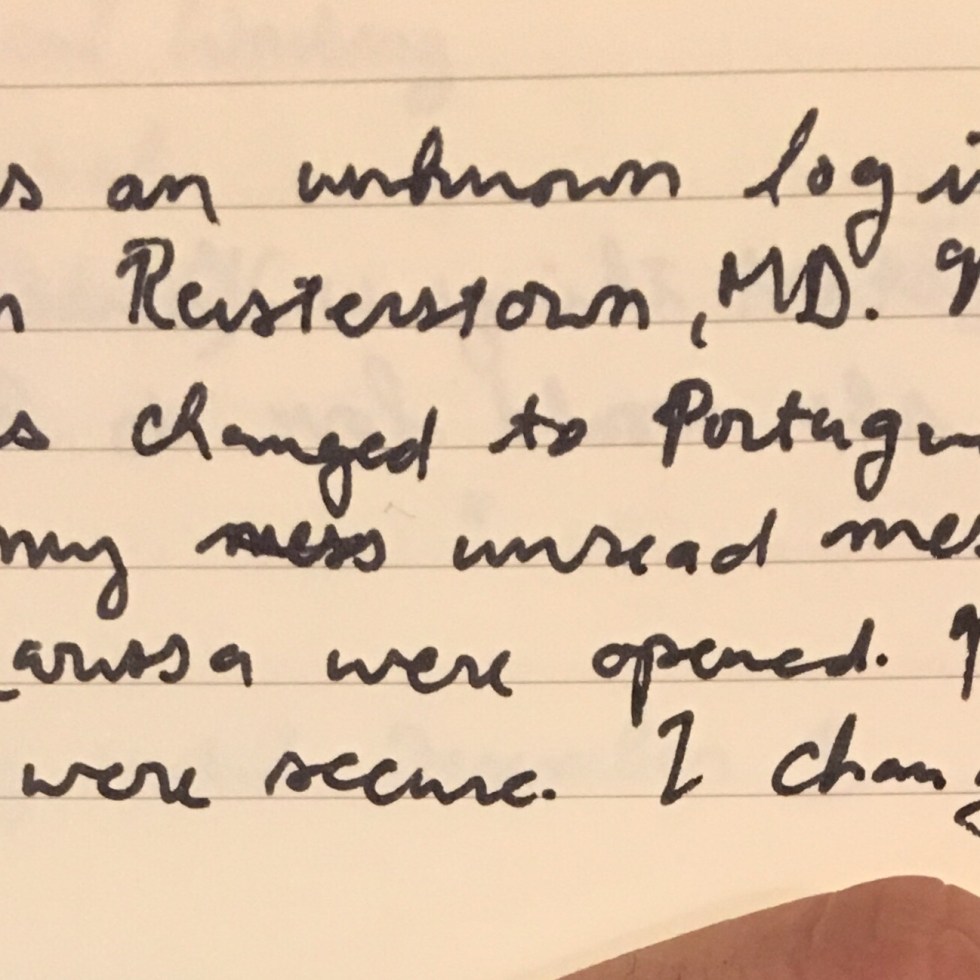 s an unknown log i
n Reisterstown, MD.
s changed to Portugu
my mess unread mes
Larissa were opened.
were secure. I chang